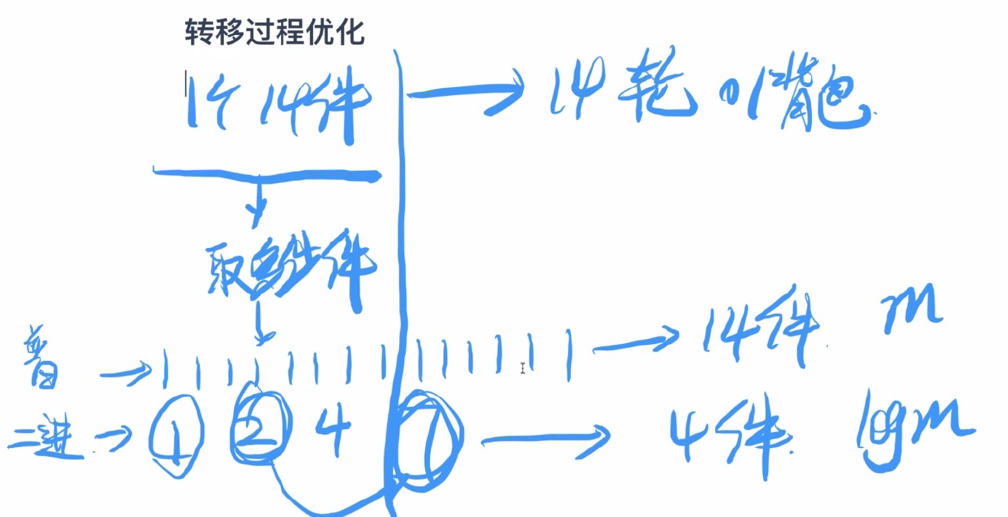 转移过程优化
1个14件 → 14轮 01背包
取多少件
普 → | | | | | | | | | | | | | | → 14件 m
二进 → 1 2 4 7 → 4件 logm